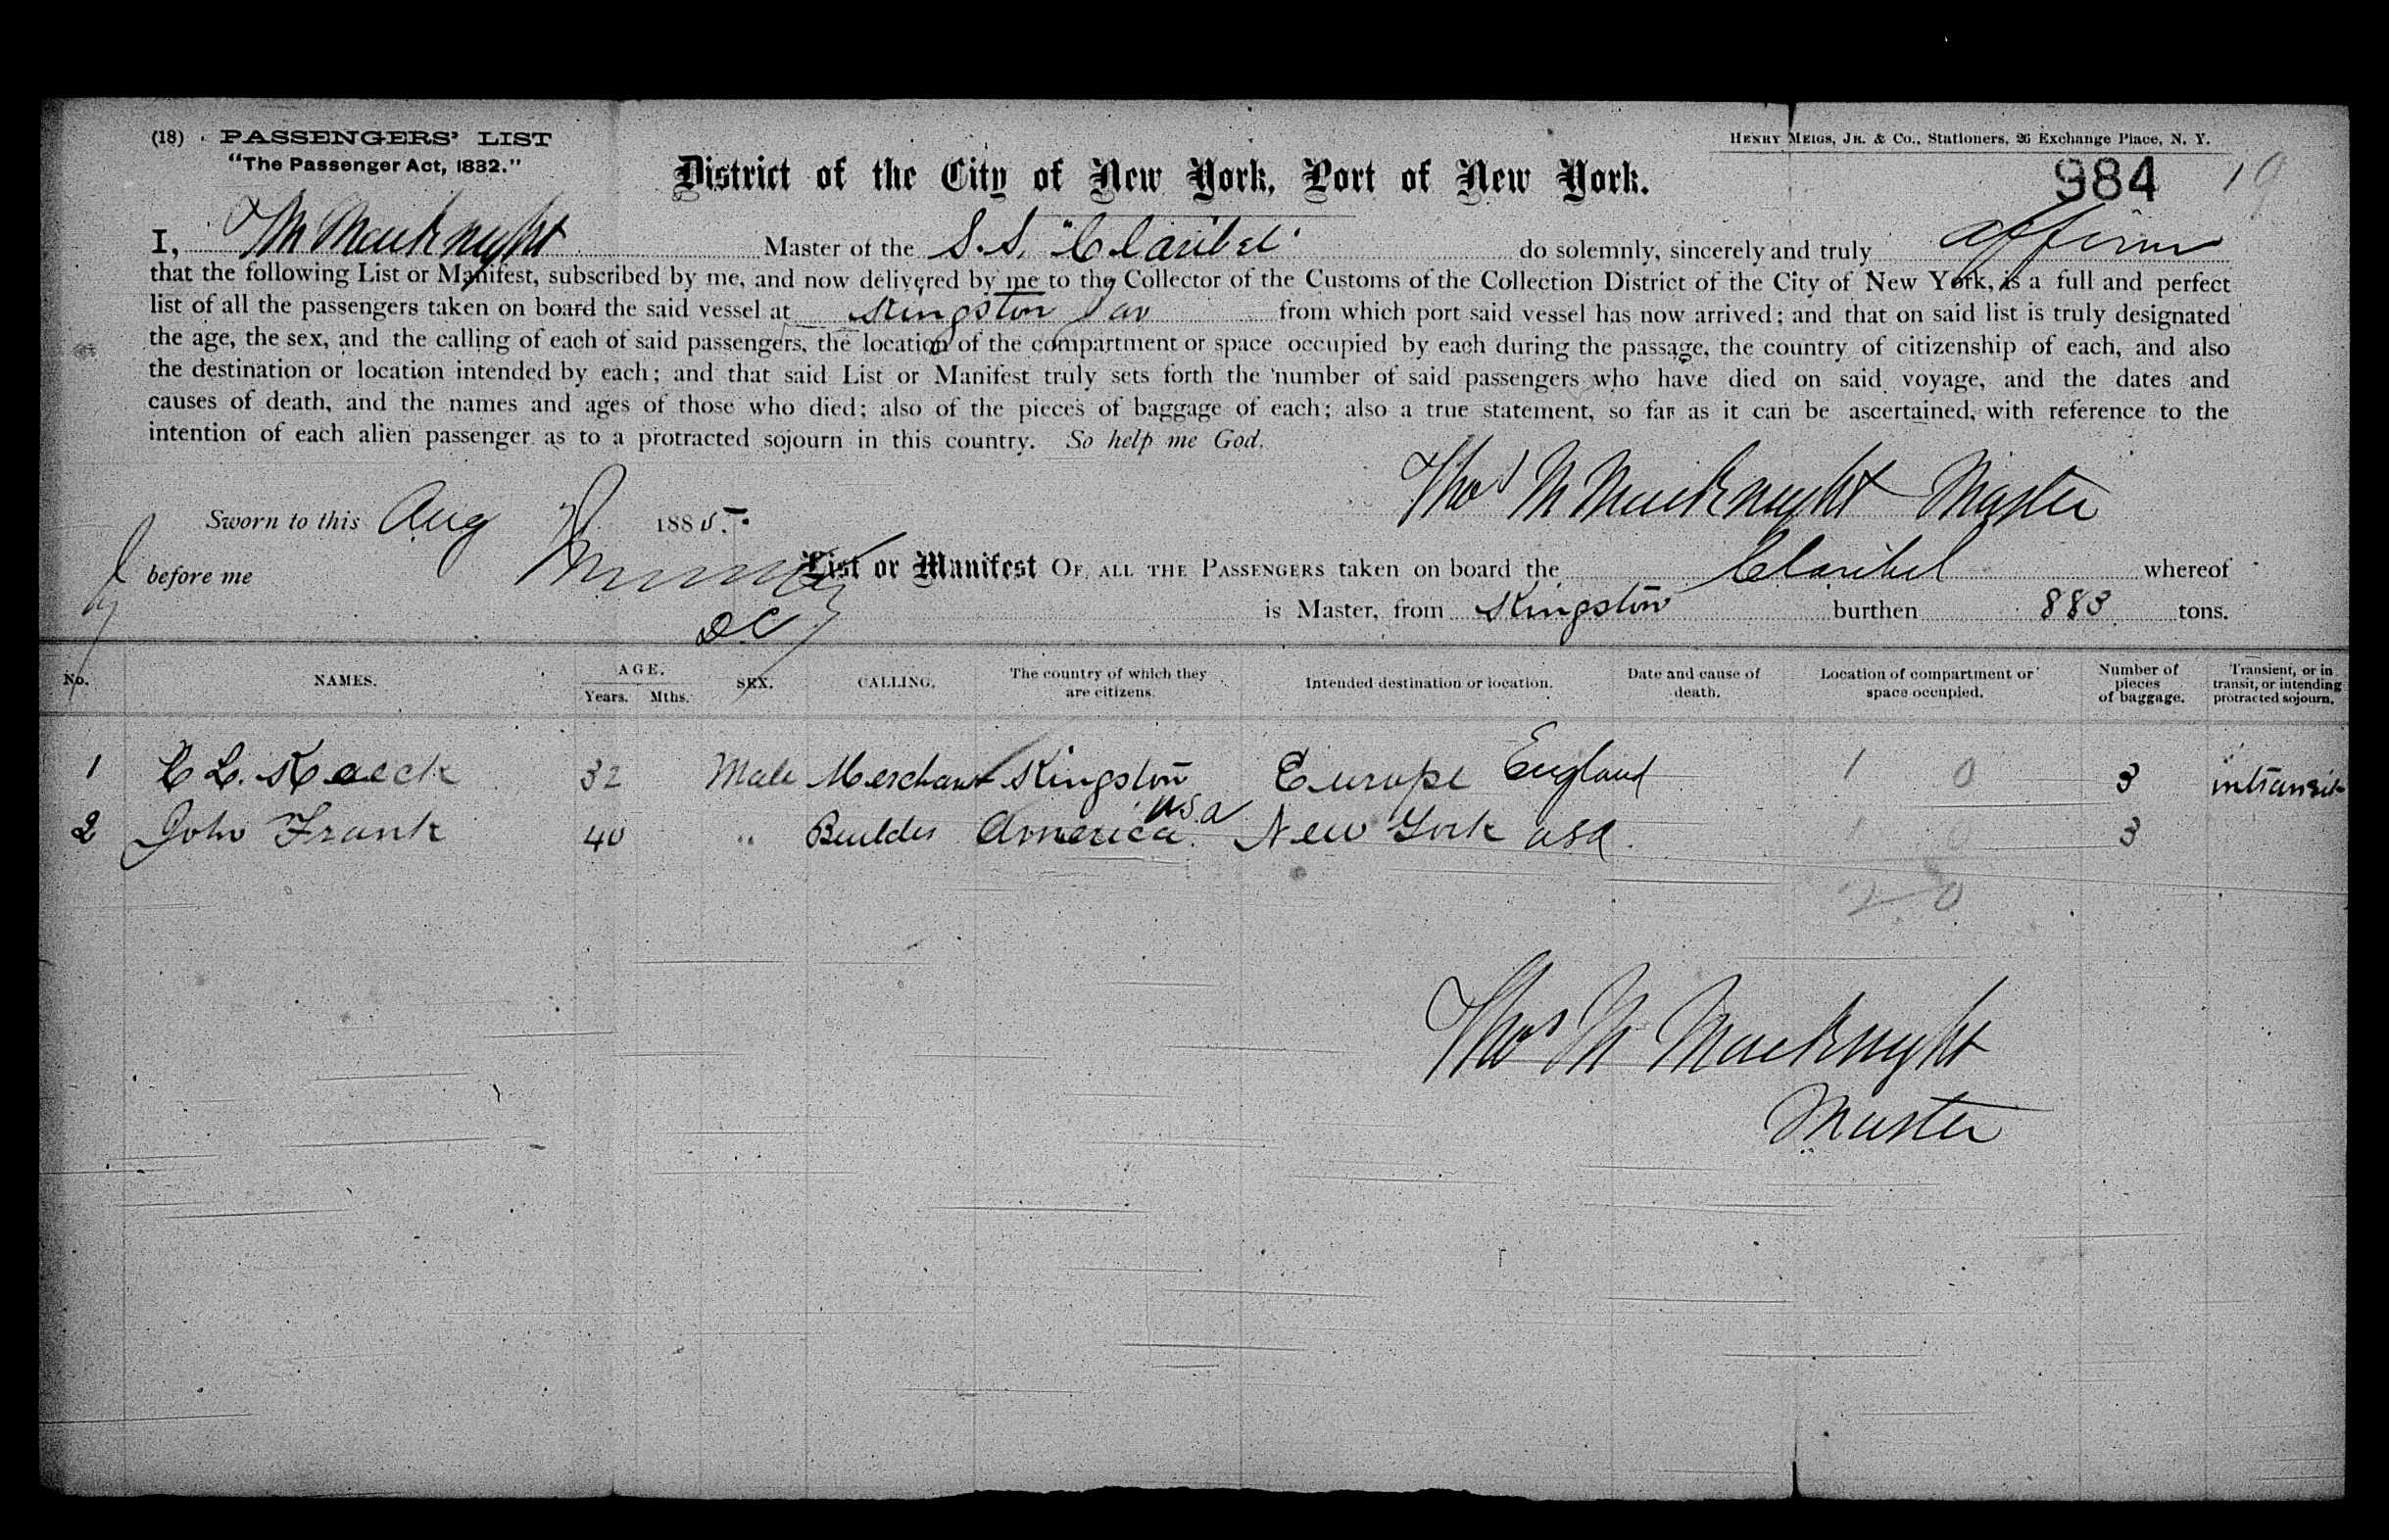 (18) PASSENGERS' LIST
"The Passenger Act, 1882."
HENRY MEIGS, JR. & CO., Stationers, 26 Exchange Place, N. Y.
District of the City of New York, Port of New York.
984 19
I, Th M MacKnight Master of the S.S. "Claribel" do solemnly, sincerely and truly affirm
that the following List or Manifest, subscribed by me, and now delivered by me to the Collector of the Customs of the Collection District of the City of New York, is a full and perfect
list of all the passengers taken on board the said vessel at Kingston Ja from which port said vessel has now arrived; and that on said list is truly designated
the age, the sex, and the calling of each of said passengers, the location of the compartment or space occupied by each during the passage, the country of citizenship of each, and also
the destination or location intended by each; and that said List or Manifest truly sets forth the number of said passengers who have died on said voyage, and the dates and
causes of death, and the names and ages of those who died; also of the pieces of baggage of each; also a true statement, so far as it can be ascertained, with reference to the
intention of each alien passenger as to a protracted sojourn in this country. So help me God.
Thos M MacKnight Master
Sworn to this Aug 1885.
before me
DC
List or Manifest OF ALL THE PASSENGERS taken on board the Claribel whereof
is Master, from Kingston burthen 883 tons.
No. NAMES. AGE. Years. Mths. SEX. CALLING. The country of which they are citizens. Intended destination or location. Date and cause of death. Location of compartment or space occupied. Number of pieces of baggage. Transient, or in transit, or intending protracted sojourn.
1 C L. 32 Male Merchant Kingston Europe England 1 0 3 intransit
2 John Frank 40 " Builder America. USA New York USA. 1 0 3
2 0
Thos M MacKnight
Master